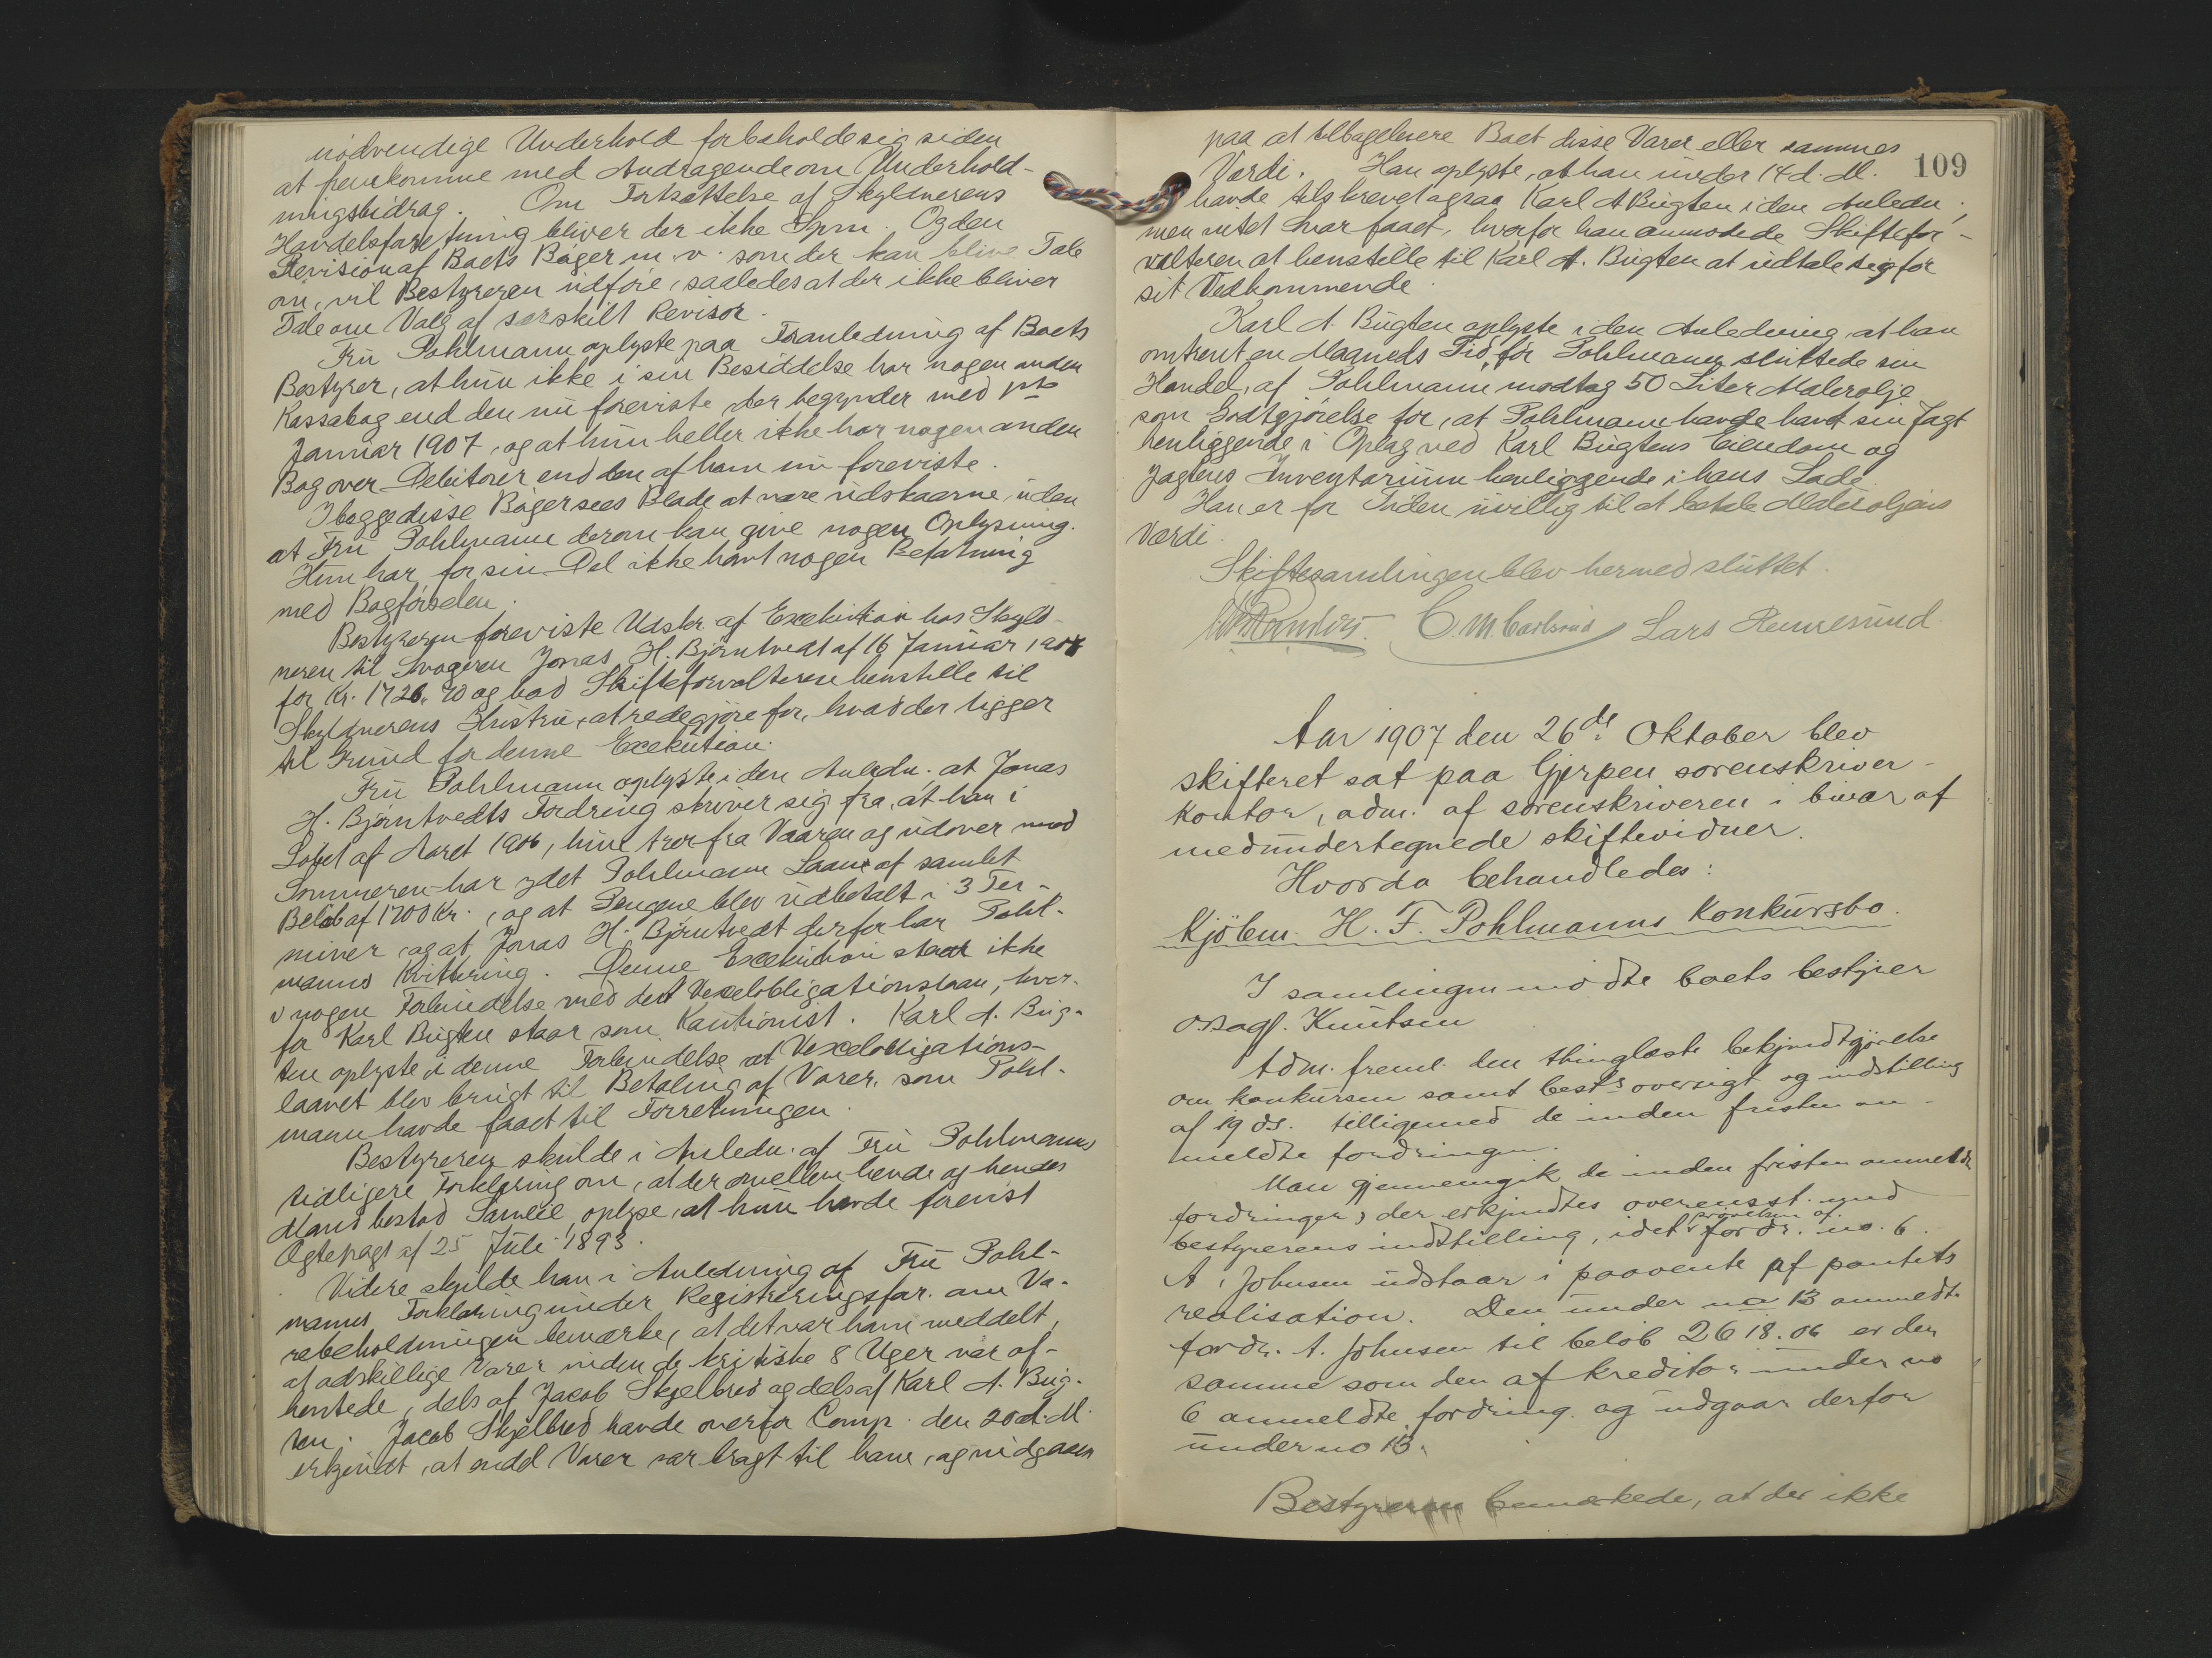 nödvendige Underhold forbeholde sig siden
at fremkomme med Andragende om Underhold-
ningsbidrag. Om Fortsættelse af Skyldnerens
Handelsforretning bliver der ikke Spm. Og den
Revision af Boets Böger m. v. som der kan blive Tale
om, vil Bestyreren udföre, saaledes at der ikke bliver
Tale om Valg af særskilt Revisor.
Fru Pohlmann oplyste paa Foranledning af Boets
Bestyrer, at hun ikke i sin Besiddelse har nogen anden
Kassabog end den nu foreviste, der begynder med 1ste
Januar 1907, og at hun heller ikke har nogen anden
Bog over Debitorer end den af ham nu foreviste.
I begge disse Böger sees Blade at være udskaarne, uden
at Fru Pohlmann derom kan give nogen Oplysning.
Hun har for sin Del ikke havt nogen Befatning
med Bogförselen.
Bestyreren foreviste Udskr. af Exekution hos Skyld-
neren til Svogeren Jonas H. Björntvedt af 16 Januar 1907
for Kr. 1726.70 og bad Skifteforvalteren henstille til
Skyldnerens Hustru, at redegjöre for, hvad der ligger
til Grund for denne Exekution.
Fru Pohlmann oplyste i den Anledn. at Jonas
H. Björntvedts Fordring skriver sig fra, at han i
Löbet af Aaret 1906, hun tror fra Vaaren og udover mod
Sommeren har ydet Pohlmann Laan af samlet
Belöb af 1700 Kr., og at Pengene blev udbetalt i 3 Ter-
miner og at Jonas H. Björntvedt derfor har Pohl-
manns Kvittering. Denne Exekution staar ikke
i nogen Forbindelse med det Vexelobligationslaan, hvor-
for Karl Bugten staar som Kautionist. Karl A. Bug-
ten oplyste i denne Forbindelse at Vexelobligations-
laanet blev brugt til Betaling af Varer, som Pohl-
mann havde faaet til Forretningen.
Bestyreren skulde i Anledn. af Fru Pohlmanns
tidligere Forklaring om, at der mellem hende og hendes
Mand bestod Særeie, oplyse, at hun havde forevist
Ægtepagt af 25 Juli 1893.
Videre skulde han i Anledning af Fru Pohl-
manns Forklaring under Registreringsfor. om Va-
rebeholdningen bemærke, at det var ham meddelt,
at adskillige Varer inden de kritiske 8 Uger var af-
hentede, dels af Jacob Skjelbred og dels af Karl A. Bug-
ten. Jacob Skjelbred havde overfor Comp. den 20 d. M.
erkjendt, at endel Varer var bragt til ham, og indgaaet
109
paa at tilbagelevere Boet disse Varer eller sammes
Værdi. Han oplyste, at han under 14 d. M.
havde tilskrevet ogsaa Karl A Bugten i den Anledn.,
men intet Svar faaet, hvorfor han anmodede Skiftefor-
valteren at henstille til Karl A. Bugten at udtale sig for
sit Vedkommende.
Karl A. Bugten oplyste i den Anledning, at han
omtrent en Maaneds Tid, för Pohlmann sluttede sin
Handel, af Pohlmann modtog 50 Liter Malerolje
som Godtgjörelse for, at Pohlmann havde havt sin Jagt
henliggende i Oplag ved Karl Bugtens Eiendom og
Jagtens Inventarium henliggende i hans Lade.
Han er for Tiden uvillig til at betale Maleroljens
Værdi.
Skiftesamlingen blev hermed sluttet.
C. M. Carlsrud Lars Rennesund
Aar 1907 den 26de Oktober blev
skifteret sat paa Gjerpen sorenskriver-
kontor, adm. af sorenskriveren i bivær af
medundertegnede skiftevidner.
Hvorda behandledes:
Kjöbm. H. F. Pohlmanns Konkursbo.
I samlingen mödte boets bestyrer
o.sagf. Knutsen
Adm. freml. den thinglæste bekjendtgjörelse
om konkursen samt bests oversigt og indstilling
af 19 ds. tilligemed de inden fristen an-
meldte fordringer.
Man gjennemgik de inden fristen anmeldte
fordringer, der erkjendtes overensst. med
bestyrerens indstilling, idet prövelsen af fordr. no. 6
A. Johnsen udstaar i paavente af pantets
realisation. Den under no 13 anmeldte
fordr. A. Johnsen til belöb 2618.06 er den
samme som den af kreditor under no
6 anmeldte fordring og udgaar derfor
under no 13.
Bestyreren bemærkede, at der ikke